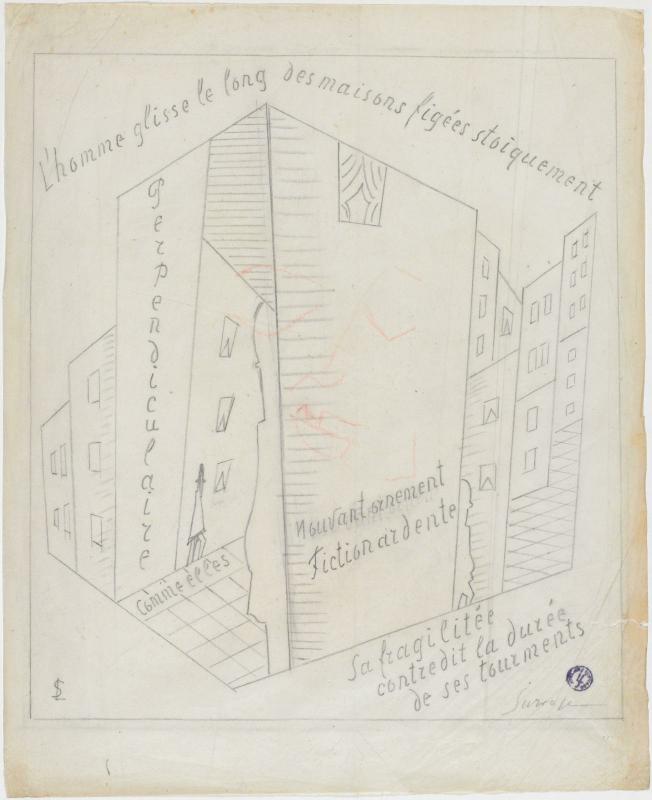 L'homme glisse le long des maisons figées stoiquement
Perpendiculaire
Comme elles
Mouvant ornement
Fiction ardente
Sa fragilitée
contredit la durée
de ses tourments
Survage